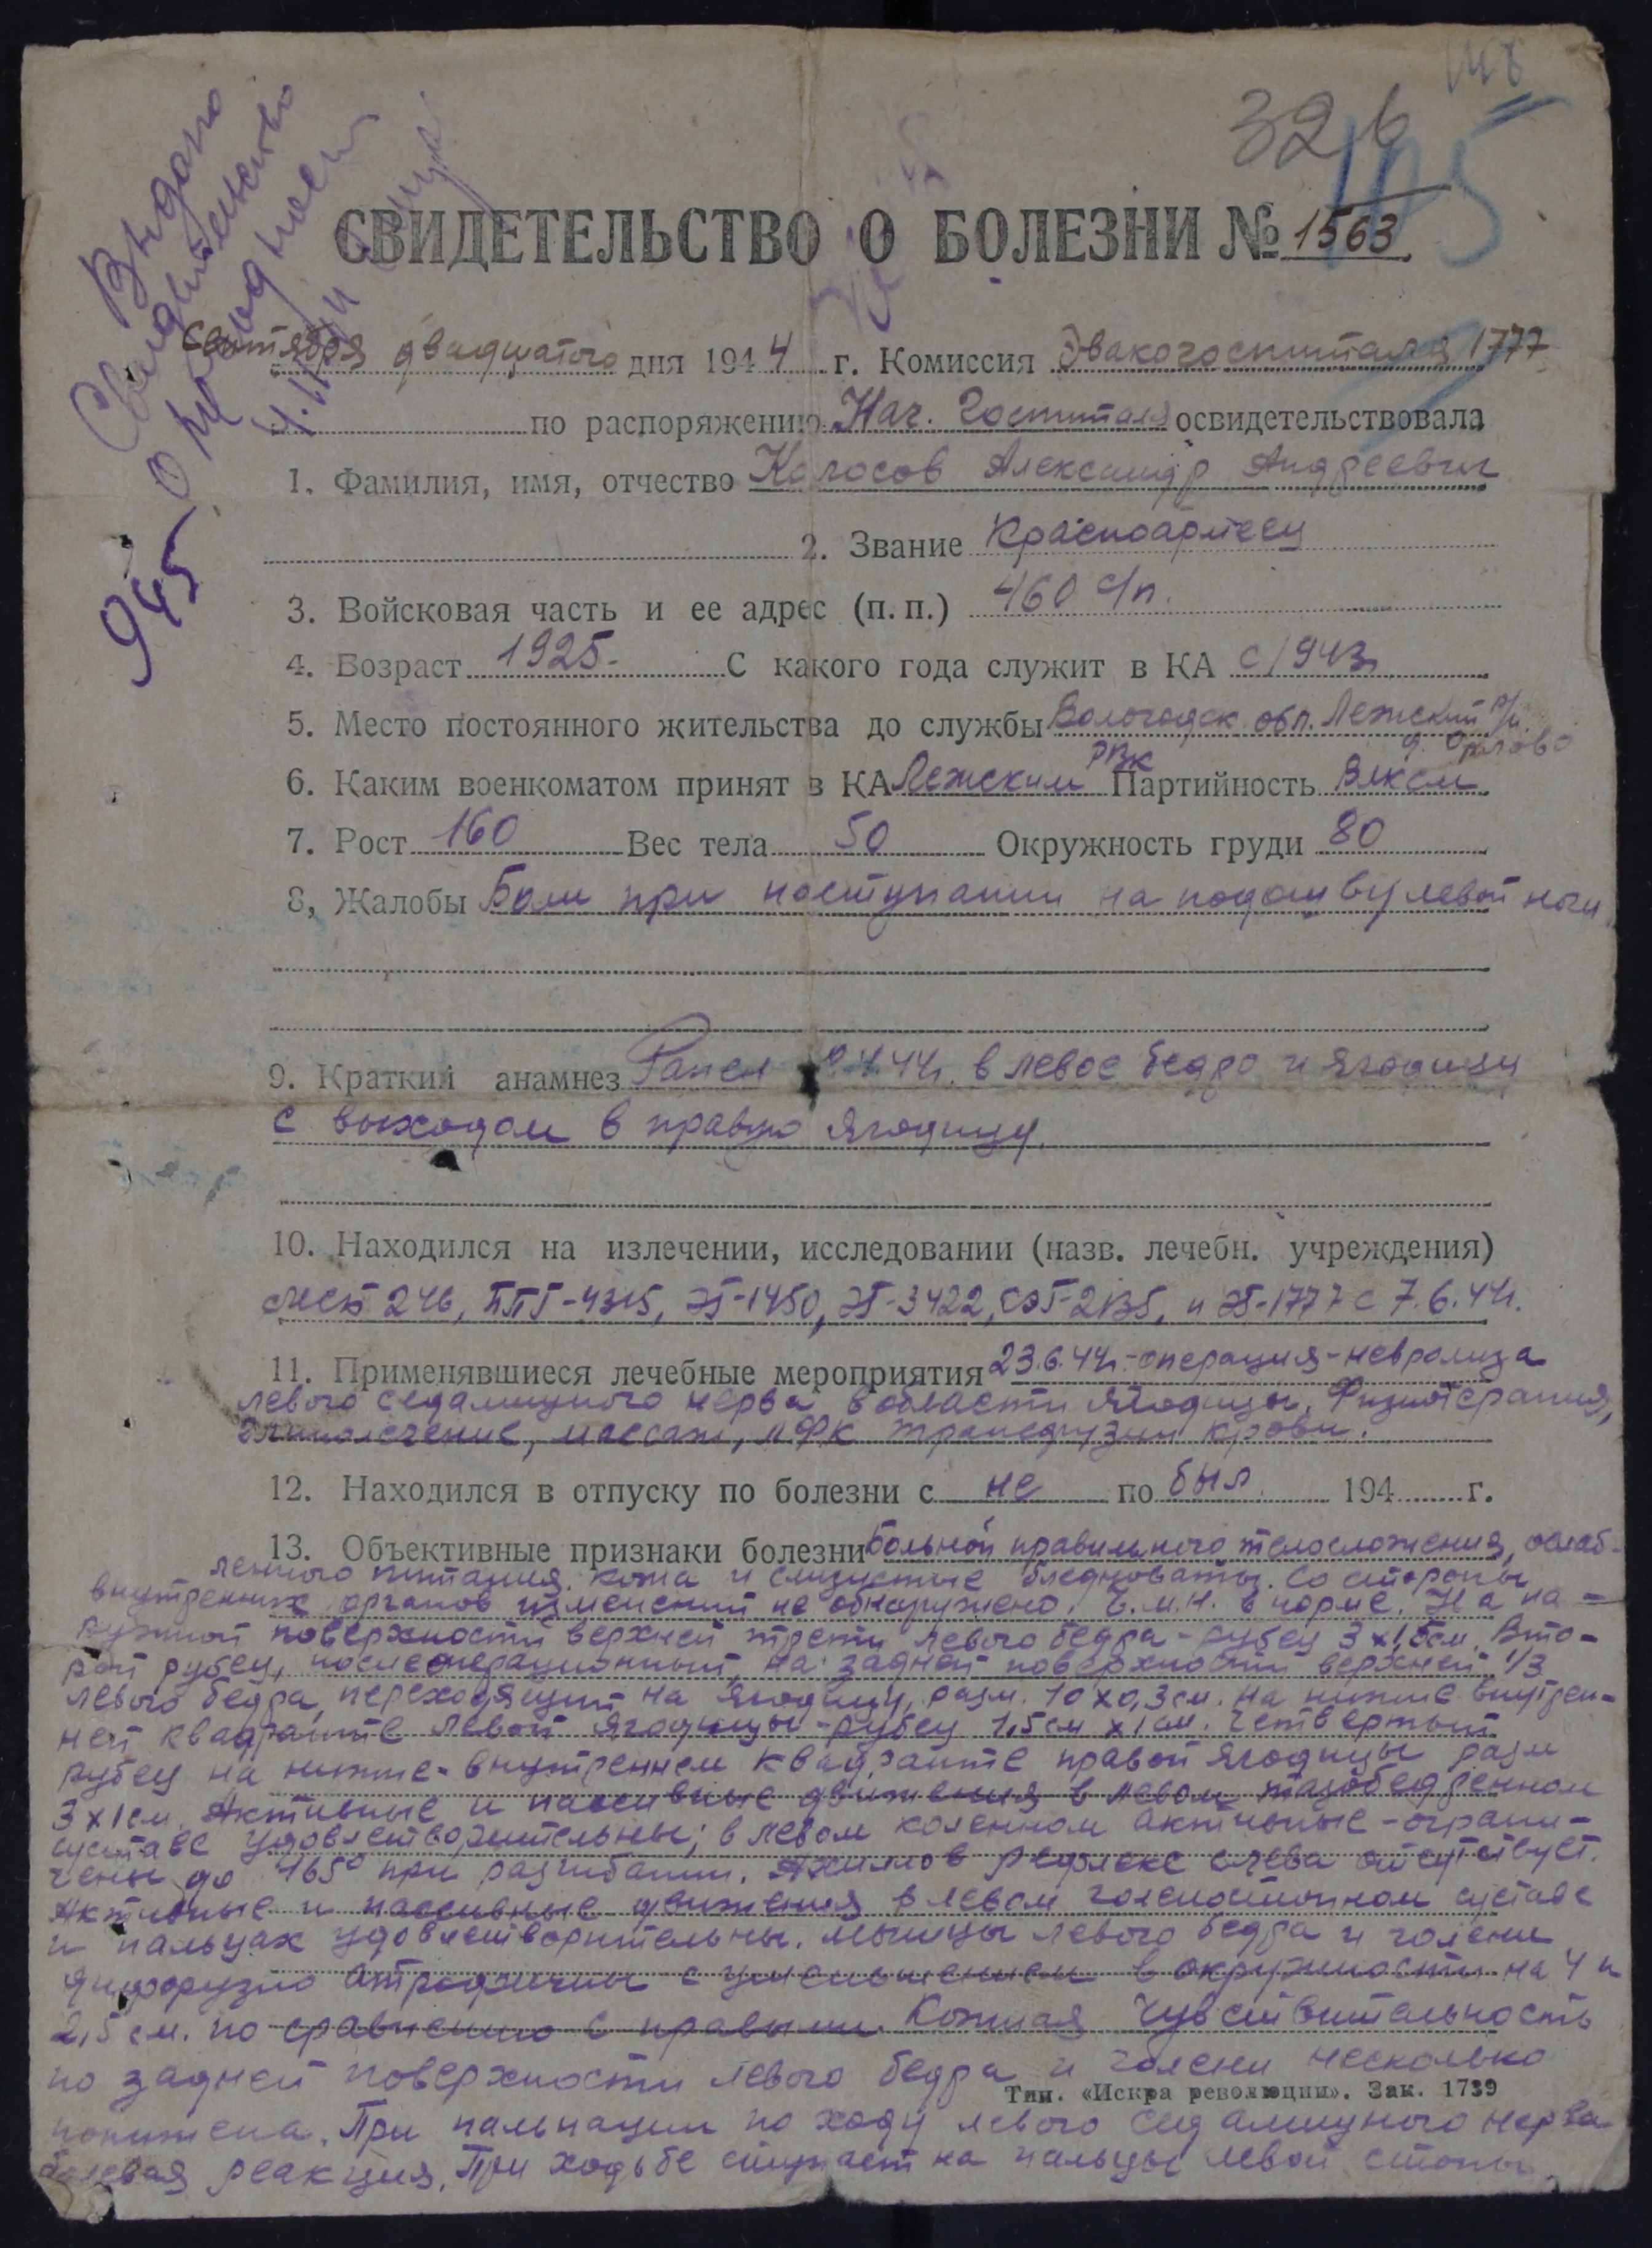 148
326
105
Выдано
Свидетельство
945
СВИДЕТЕЛЬСТВО О БОЛЕЗНИ № 1563
Сентября двадцатого дня 1944 г. Комиссия Эвакогоспиталя 1777
по распоряжению Нач. Госпиталя освидетельствовала
1. Фамилия, имя, отчество Колосов Александр Андреевич
2. Звание Красноармеец
3. Войсковая часть и ее адрес (п. п.) 460 с/п.
4. Возраст 1925. С какого года служит в КА с 1943г
5. Место постоянного жительства до службы Вологодск. обл. Лежский р/н
д. Орлово
6. Каким военкоматом принят в КА Лежским РВК Партийность ВЛКСМ
7. Рост 160 Вес тела 50 Окружность груди 80
8, Жалобы Боли при наступании на подошву левой ноги
9. Краткий анамнез Ранен 44г. в левое бедро и ягодицу
с выходом в правую ягодицу.
10. Находился на излечении, исследовании (назв. лечебн. учреждения)
246, ППГ-4315, ЭГ-1450, ЭГ-3422, СЭГ-2135, и ЭГ-1777 с 7.6.44г.
11. Применявшиеся лечебные мероприятия 23.6.44г.-операция-невролиза
левого седалищного нерва в области ягодицы. Физиотерапия,
массаж, ЛФК трансфузии крови.
12. Находился в отпуску по болезни с не по был 194 г.
13. Объективные признаки болезни Больной правильного телосложения, ослаб-
ленного питания. Кожа и слизистые бледноваты. Со стороны
внутренних органов изменений не обнаружено. Ч.м.н. в норме. На на-
ружной поверхности верхней трети левого бедра - рубец 3 x 1,5см. Вто-
рой рубец, послеоперационный, на задней поверхности верхней 1/3
левого бедра, переходящий на ягодицу, разм. 10 x 0,3 см. На нижне-внутрен-
ней квадранте левой ягодицы - рубец 1,5см x 1 см. Четвертый
рубец на нижне-внутреннем квадранте правой ягодицы разм
3 x 1 см. Активные и пассивные движения в левом тазобедренном
суставе удовлетворительны; в левом коленном активные - ограни-
чены до 165° при разгибании. Ахиллов рефлекс слева отсутствует.
Активные и пассивные движения в левом голеностопном суставе
и пальцах удовлетворительны. Мышцы левого бедра и голени
диффузно атрофичны с уменьшением в окружности на 4 и
2,5 см. по сравнению с правыми. Кожная чувствительность
по задней поверхности левого бедра и голени несколько
Тип. «Искра революции». Зак. 1739
понижена. При пальпации по ходу левого седалищного нерва
болевая реакция. При ходьбе ступает на пальцы левой стопы.